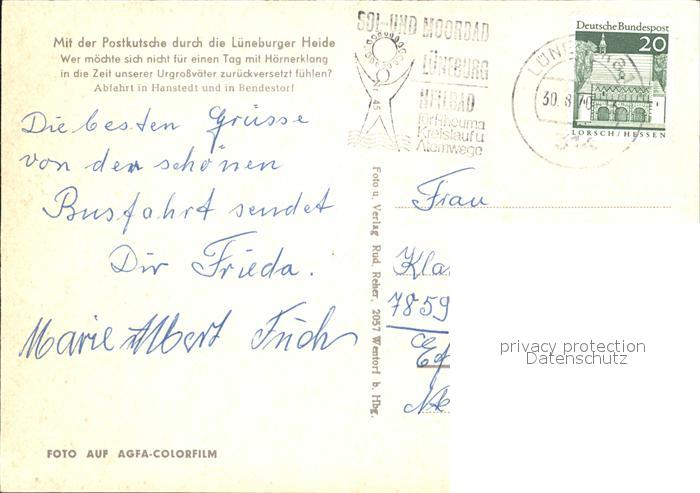 Mit der Postkutsche durch die Lüneburger Heide
Wer möchte sich nicht für einen Tag mit Hörnerklang
in die Zeit unserer Urgroßväter zurückversetzt fühlen?
Abfahrt in Hanstedt und in Bendestorf
Die besten Grüsse
von der schönen
Busfahrt sendet
Dir Frieda.
Marie Albert Fuchs
FOTO AUF AGFA-COLORFILM
Foto u. Verlag Rud. Reher, 2057 Wentorf b. Hbg.
SOL-UND MOORBAD
LÜNEBURG
HEILBAD
für Rheuma
Kreislauf u
Atemwege
Deutsche Bundespost
20
LORSCH/HESSEN
30.8.70
Frau
Kla
7859
Ef
privacy protection
Datenschutz